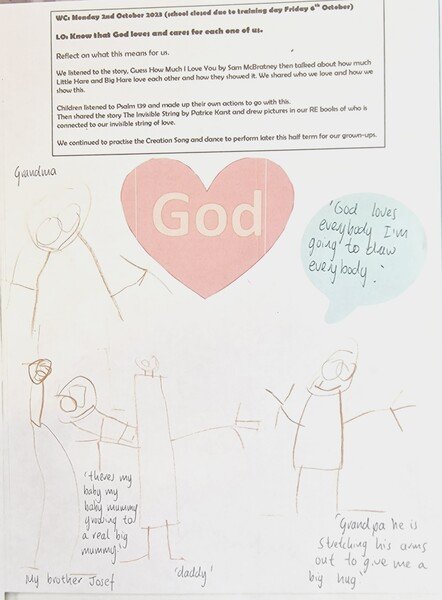 WC: Monday 2nd October 2023 (school closed due to training day Friday 6th October)
LO: Know that God loves and cares for each one of us.
Reflect on what this means for us.
We listened to the story, Guess How Much I Love You by Sam McBratney then talked about how much
Little Hare and Big Hare love each other and how they showed it. We shared who we love and how we
show this.
Children listened to Psalm 139 and made up their own actions to go with this.
Then shared the story The Invisible String by Patrice Karst and drew pictures in our RE books of who is
connected to our invisible string of love.
We continued to practise the Creation Song and dance to perform later this half term for our grown-ups.
Grandma
God
'God loves
everybody I'm
going to draw
everybody.'
'theres my
baby my
baby mummy
to
a real big
mummy'
My brother Josef
'daddy'
'Grandpa he is
stretching his arms
out to give me a
big hug'